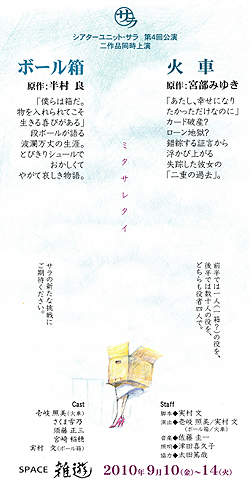 サラ
シアターユニット・サラ 第4回公演
二作品同時上演
ボール箱
原作：半村 良
「僕らは箱だ。
物を入れられてこそ
生きる喜びがある」
段ボールが語る
波瀾万丈の生涯。
とびきりシュールで
おかしくて
やがて哀しき物語。
火 車
原作：宮部みゆき
「あたし、幸せになり
たかっただけなのに」
カード破産？
ローン地獄？
錯綜する証言から
浮かび上がる
失踪した彼女の
「二重の過去」。
ミタサレタイ
前半では一人（一箱？）の役を、
後半では数十人の役を、
どちらも役者四人で。
サラの新たな挑戦に
ご期待ください。
Cast
壱岐 照美(火車)
さくま雪乃
須藤 正三
宮崎 稲穂
実村 文(ボール箱)
Staff
脚本◆実村 文
演出◆壱岐 照美／実村 文
(ボール箱／火車)
音楽◆佐藤 圭一
照明◆津田喜久子
協力◆太田篤哉
SPACE 雑遊 2010年9月10(金)~14(火)